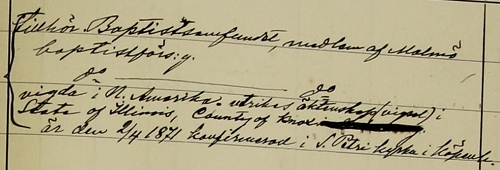 Tillhör Baptistsamfundet, medlem af Malmö
baptistförs:g.
do do
vigda i N. Amerika. utrikes äktenskap (vigsel) i
State of Illinois, County of Knox
är den 2/4 1871 konfirmerad i S. Petri kyrka i Köpenh.